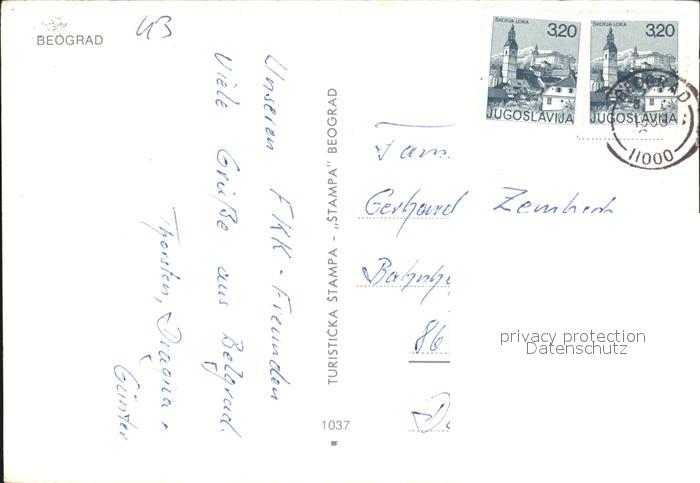 BEOGRAD
Unseren FKK-Freunden
Viele Grüße aus Belgrad.
Thorsten, Dragna,
Günter
TURISTIČKA ŠTAMPA - „ŠTAMPA" BEOGRAD
1037
ŠKOFJA LOKA
3,20
JUGOSLAVIJA
ŠKOFJA LOKA
3,20
JUGOSLAVIJA
BEOGRAD
11000
Fam.
Gerhard
Bahnho
86
privacy protection
Datenschutz